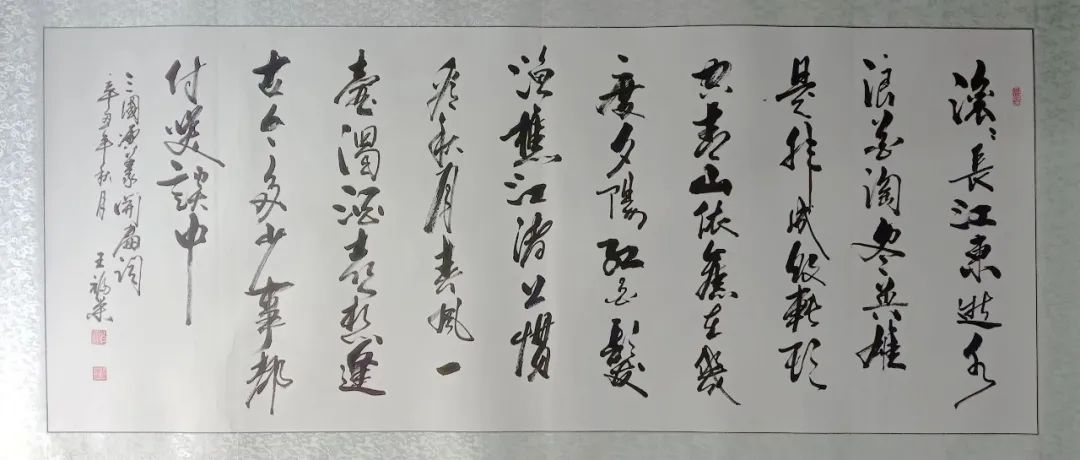 滚滚長江東逝水
浪花淘尽英雄
是非成敗轉頭
空青山依舊在幾
度夕陽紅白髮
漁樵江渚上慣
看秋月春風一
壺濁酒喜相逢
古今多少事都
付笑談中
三國演義開篇詞
辛丑年秋月
王福荣